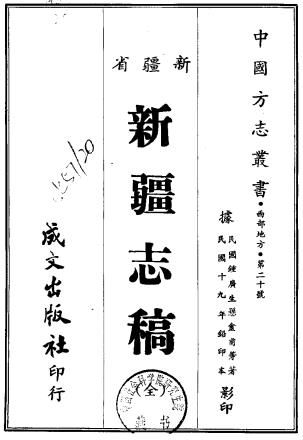 中國方志叢書・西部地方・第二十號
據
民國鍾廣生孫𥂕甫等著
民國十九年鉛印本
影印
新疆省
新疆志稿
(全)
成文出版社印行